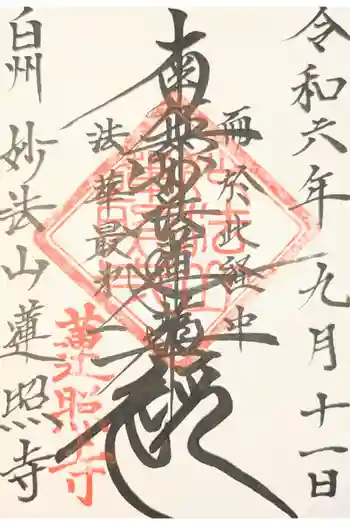 令和六年九月十一日
而於此経中
南無妙法蓮華経
法華最
白州 妙法山蓮照寺
蓮照寺